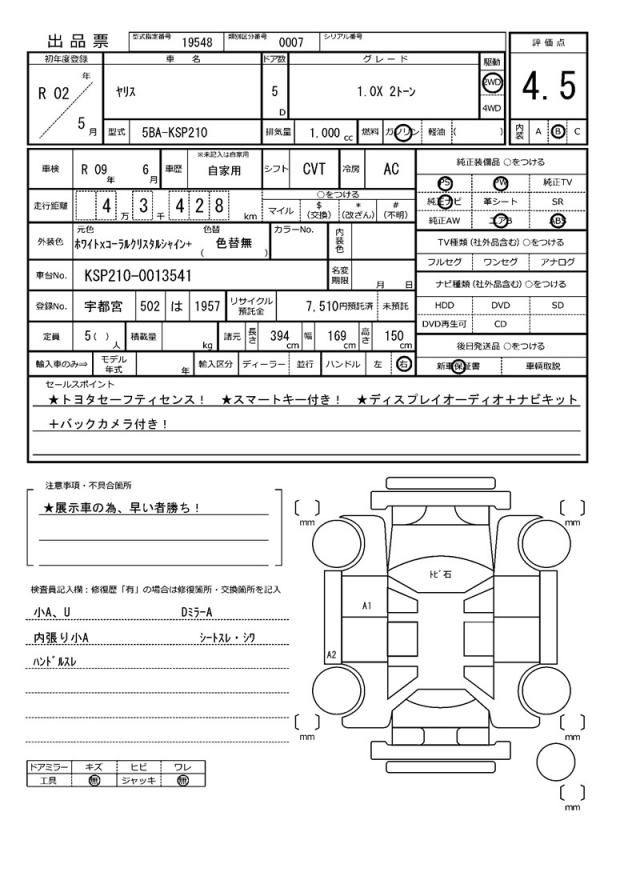 出品票 型式指定番号 19548 類別区分番号 0007 シリアル番号
評価点
4.5
内装 A B C
初年度登録 車名 ドア数 グレード 駆動
R 02 年 5 月
ヤリス 5 D 1.0X 2トーン 2WD 4WD
型式 5BA-KSP210 排気量 1.000 cc 燃料 ガソリン 軽油 ( )
車検 R 09 年 6 月 車歴 ※未記入は自家用 自家用 シフト CVT 冷房 AC
走行距離 4 万 3 千 4 2 8 km
○をつける
マイル $(交換) *(改ざん) #(不明)
外装色 元色 ホワイトxコーラルクリスタルシャイン+ 色替 ( 色替無 ) カラーNo. 内装色
車台No. KSP210-0013541 名変期限 月 日
登録No. 宇都宮 502 は 1957 リサイクル預託金 7,510円預託済 未預託
定員 5( ) 人 積載量 kg 諸元 長さ 394 cm 幅 169 cm 高さ 150 cm
輸入車のみ⇒ モデル年式 年 輸入区分 ディーラー 並行 ハンドル 左 右
純正装備品 ○をつける
PS PW 純正TV
純正ナビ 革シート SR
純正AW エアB ABS
TV種類 (社外品含む) ○をつける
フルセグ ワンセグ アナログ
ナビ種類 (社外品含む) ○をつける
HDD DVD SD
DVD再生可 CD
後日発送品 ○をつける
新車保証書 車輌取説
セールスポイント
★トヨタセーフティセンス! ★スマートキー付き! ★ディスプレイオーディオ+ナビキット
+バックカメラ付き!
注意事項・不具合箇所
★展示車の為、早い者勝ち!
検査員記入欄:修復歴「有」の場合は修復箇所・交換箇所を記入
小A、U DミラーA
内張り小A シートスレ・シワ
ハンドルスレ
ドアミラー キズ ヒビ ワレ
工具 無 ジャッキ 無
[ ] mm
[ ] mm
トビ石
A1
A2
[ ] mm
[ ] mm
[ ] mm